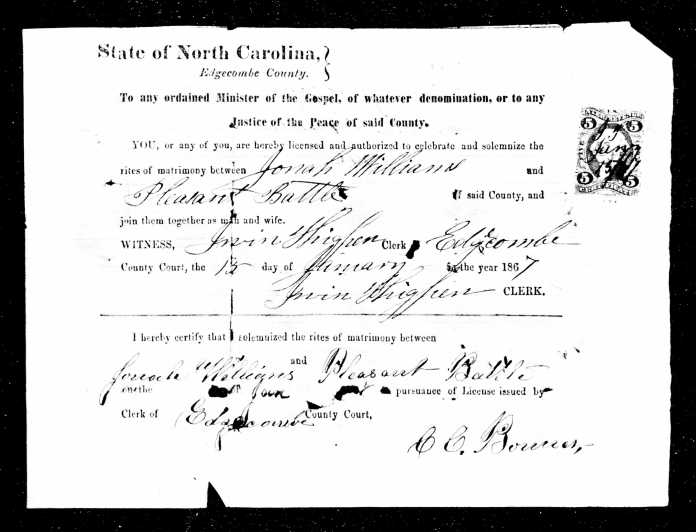 State of North Carolina,
Edgecombe County.
To any ordained Minister of the Gospel, of whatever denomination, or to any
Justice of the Peace of said County.
YOU, or any of you, are hereby licensed and authorized to celebrate and solemnize the
rites of matrimony between Jonah Williams and
Pleasant Battle of said County, and
join them together as man and wife.
WITNESS, Irwin Thigpen Clerk Edgecombe
County Court, the 15 day of January in the year 1867
Irwin Thigpen CLERK.
I hereby certify that I solemnized the rites of matrimony between
Jonah Williams and Pleasant Battle
on the Jan pursuance of License issued by
Clerk of Edgecombe County Court,
C. C. Bonner,
5 5
FIVE
5 5